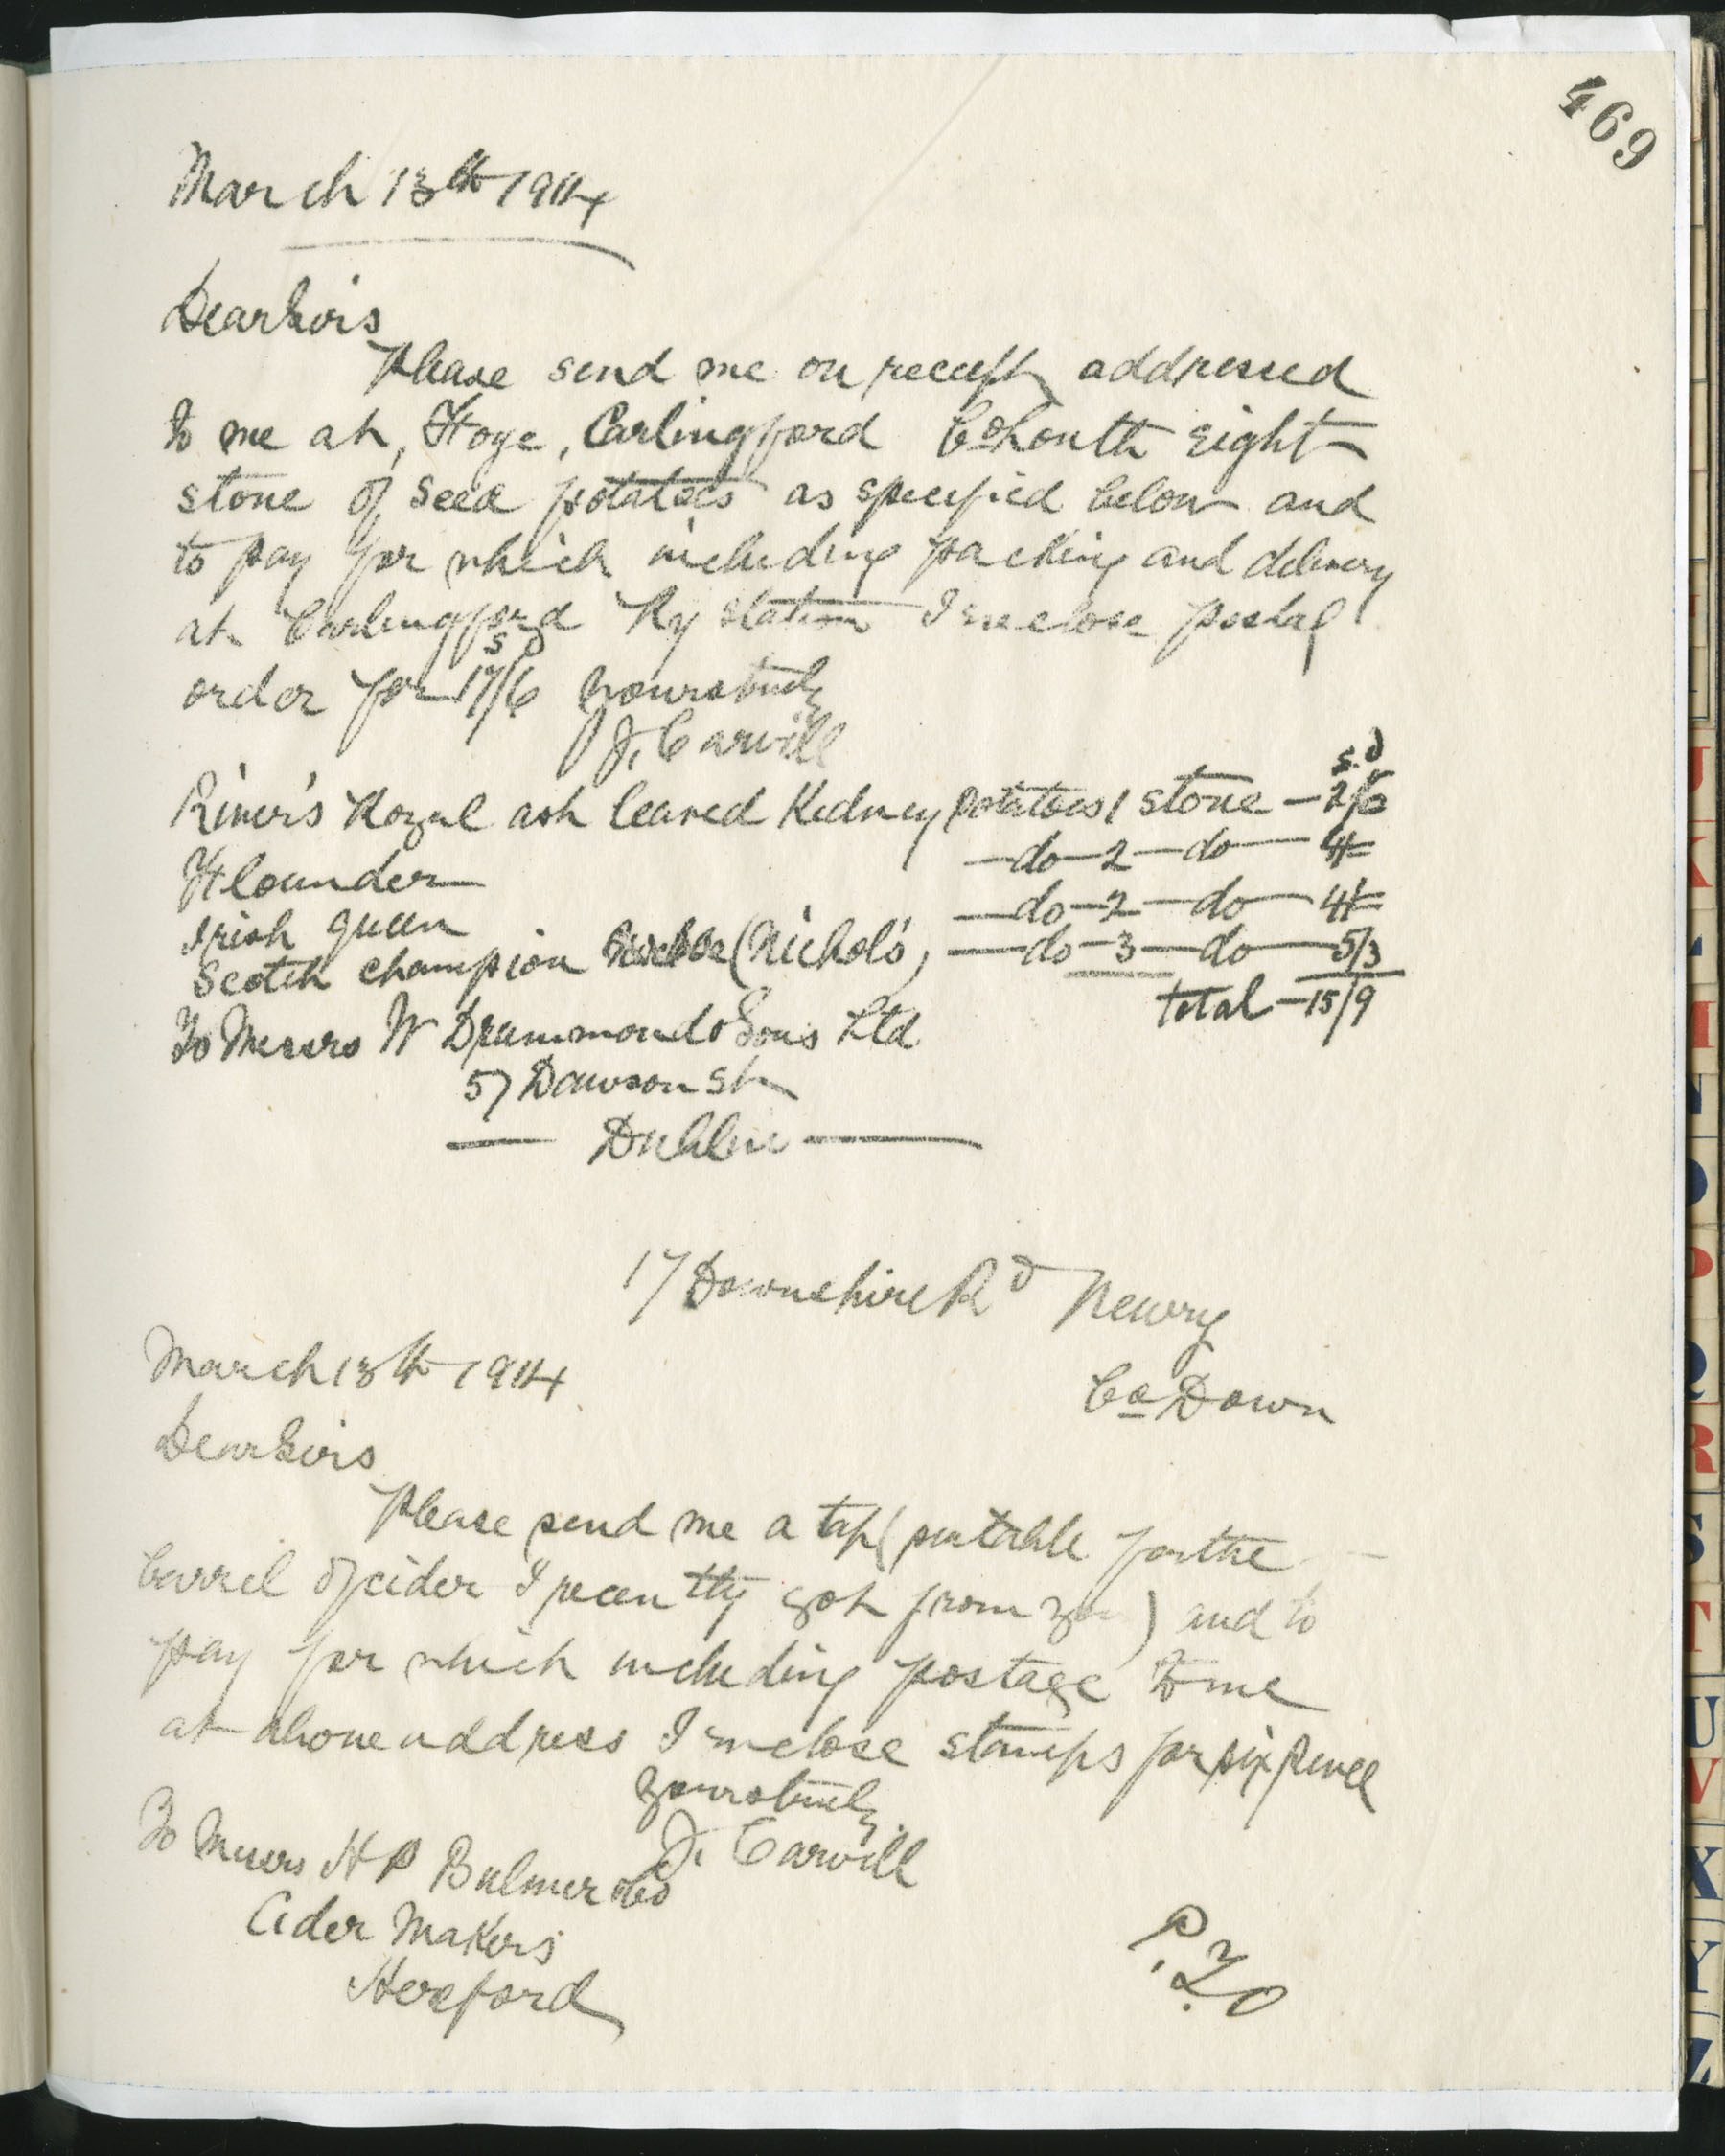 469
March 13th 1914
Dear Sirs
Please send me on receipt addressed
to me at, Ffoye, Carlingford Co Louth Eight
stone of seed potatoes as specified below and
to pay for which including packing and delivery
at Carlingford Ry station I enclose postal
order for 17/6 yours truly
s d
J. Carvill
s. d
River's Royal ash leaved Kidney potatoes 1 stone — 2/6
Flounder — do — 2 — do — 4/=
Irish queen — do — 2 — do — 4/=
Scotch champion (Nichol's) — do — 3 — do — 5/3
total — 15/9
To Messrs W Drummond & Sons Ltd
57 Dawson St
— Dublin —
17 Downshire Rd Newry
Co Down
March 13th 1914
Dear Sirs
Please send me a tap (suitable for the
barrel of cider I recently got from you) and to
pay for which including postage to me
at above address I enclose stamps for six pence
yours truly
J. Carvill
To Messrs H P Bulmer & Co
Cider Makers
Hereford
P.T.O